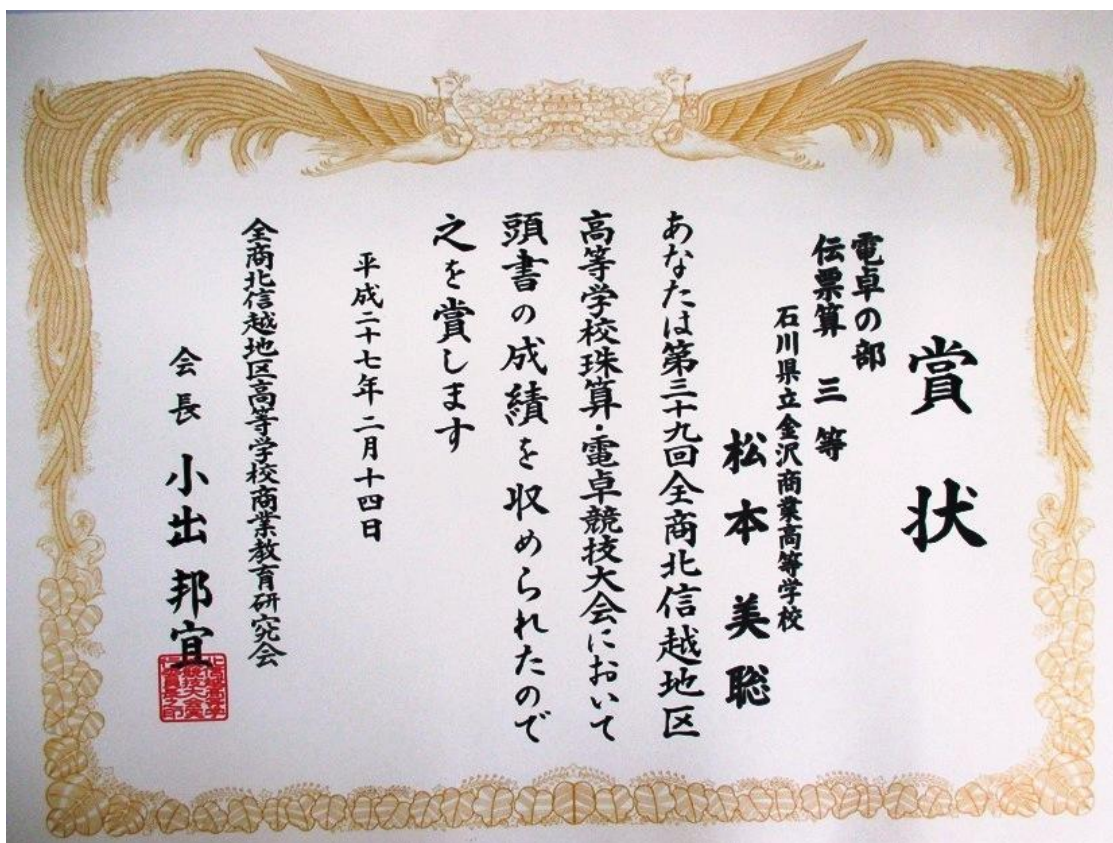 賞状
電卓の部
伝票算 三等
石川県立金沢商業高等学校
松本美聡
あなたは第三十九回全商北信越地区
高等学校珠算・電卓競技大会において
頭書の成績を収められたので
之を賞します
平成二十七年二月十四日
全商北信越地区高等学校商業教育研究会
会長 小出邦宜